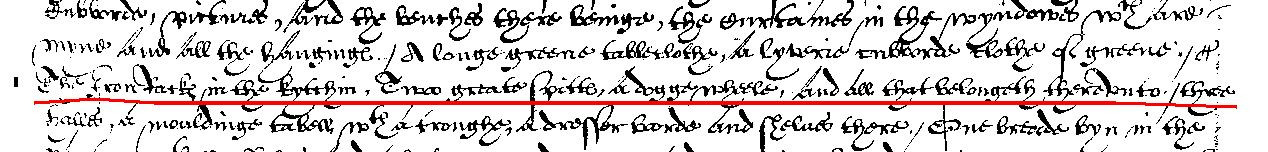 Cubborde, pictures, And the benches there beinge, the Curtaines in the wyndowes wch are
myne And all the hangings. / A longe greene tableclothe, a lyverie cubborde clothe of greene. /
The Iron Jacke in the kytchin, Twoo greate spitts, a dogge wheele, And all that belongeth therevnto / three
a mouldinge table, wth a troughe, a dresser borde and shelves there. / One breade byn in the